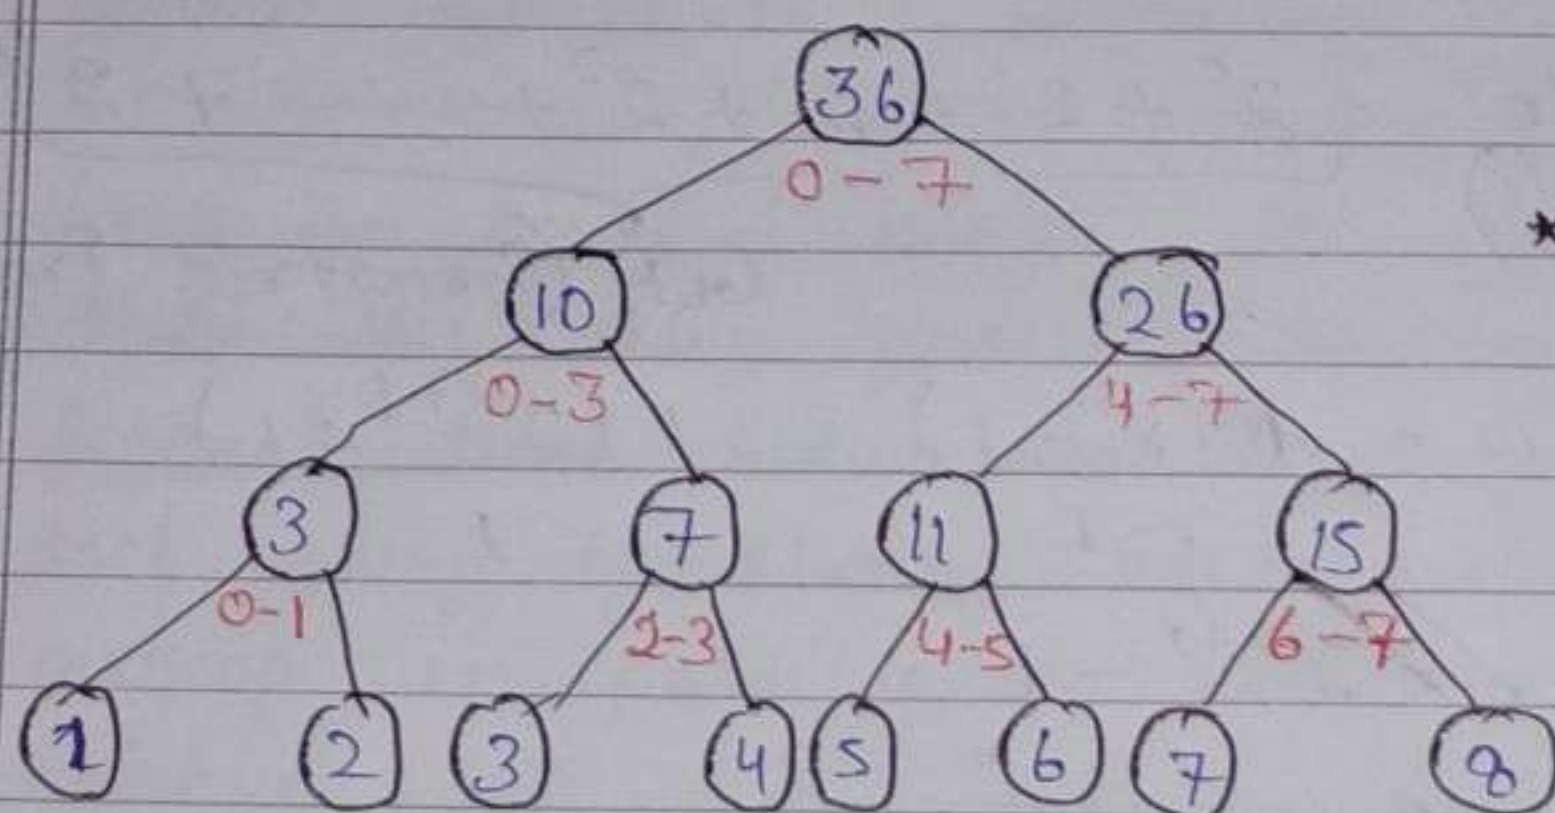 36
0-7
★
10 26
0-3 4-7
3 7 11 15
0-1 2-3 4-5 6-7
1 2 3 4 5 6 7 8